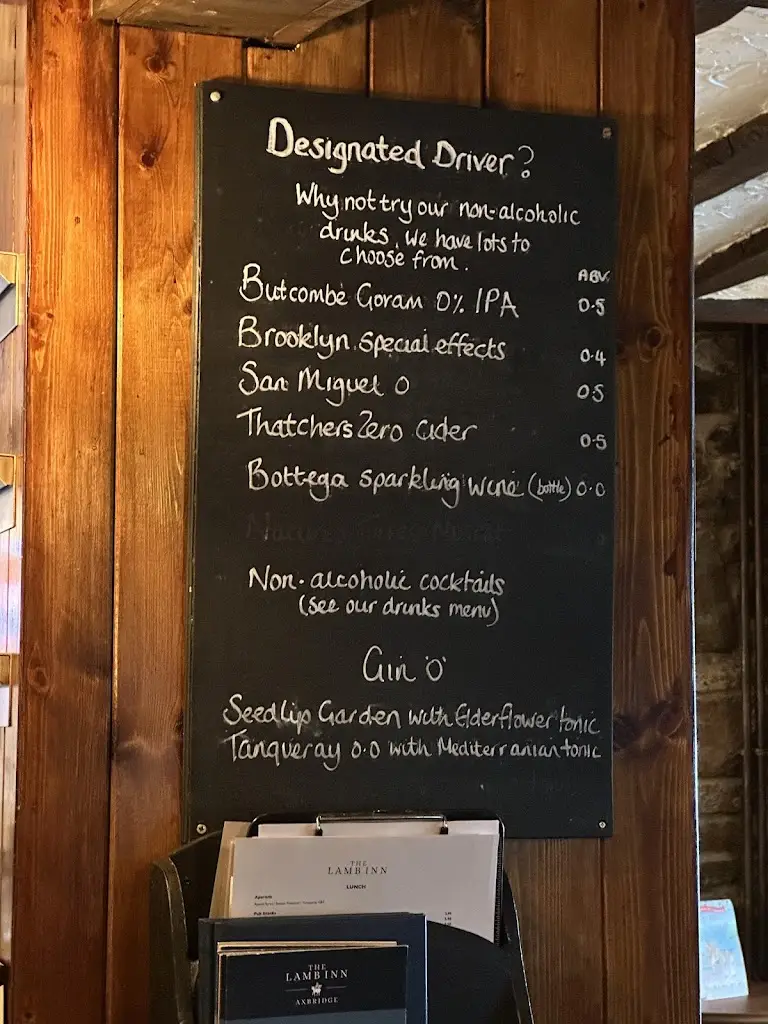 Designated Driver?
Why not try our non-alcoholic
drinks, we have lots to
choose from.
ABV
Butcombe Goram 0% IPA 0.5
Brooklyn special effects 0.4
San Miguel 0 0.5
Thatchers Zero cider 0.5
Bottega sparkling wine (bottle) 0.0
Non-alcoholic cocktails
(see our drinks menu)
Gin '0'
Seedlip Garden with Elderflower tonic
Tanqueray 0.0 with Mediterranian tonic
THE
LAMB INN
LUNCH
Aperitifs
Pub Snacks
THE
LAMB INN
AXBRIDGE